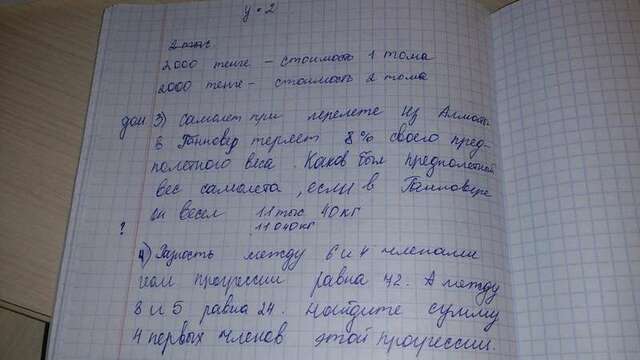 у • 2
2 тыс
2000 тенге – стоимость 1 тома
2000 тенге – стоимость 2 тома
дом 3) Самолет при перелете из Алматы
в Ганновер теряет 8% своего пред-
полетного веса. Каков был предполетный
вес самолета, если в Ганновере
он весел 11 тыс. 40 кг
? 11 040 кг
4) Разность между 6 и 4 членами
геом прогрессии равна 72. А между
3 и 5 равна 24. Найдите сумму
4 первых членов этой прогрессии.